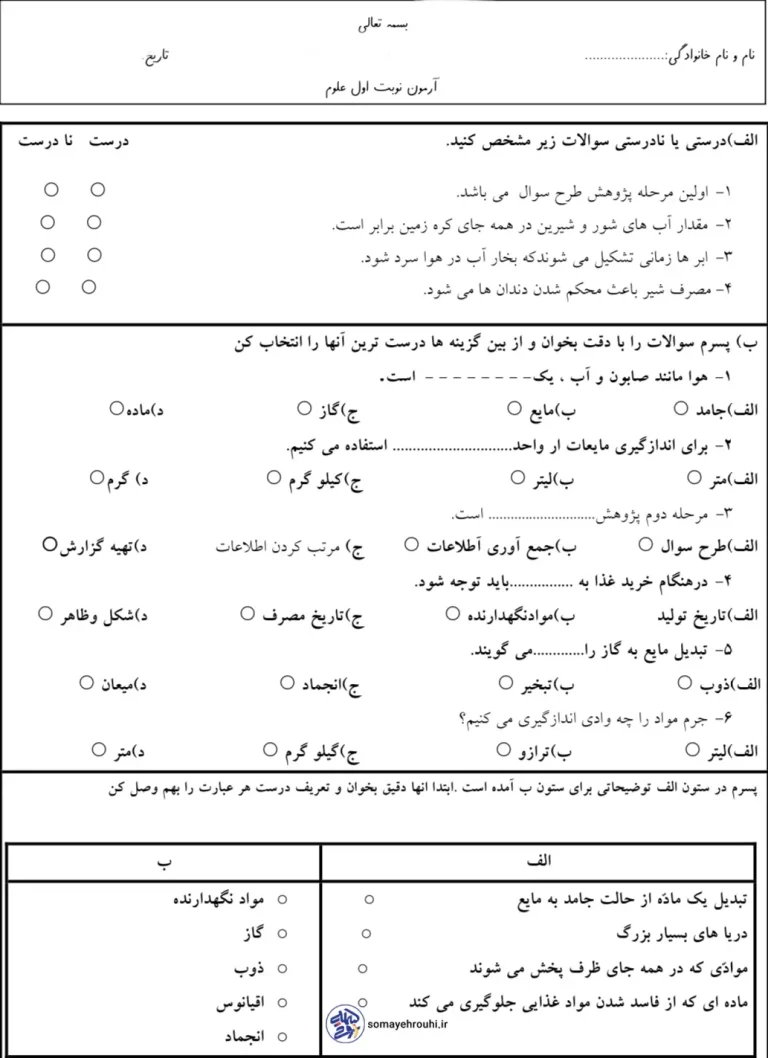 بسمه تعالی
نام و نام خانوادگی:...................... تاریخ:
آزمون نوبت اول علوم
الف)درستی یا نادرستی سوالات زیر مشخص کنید. درست نا درست
۱- اولین مرحله پژوهش طرح سوال می باشد. ○ ○
۲- مقدار آب های شور و شیرین در همه جای کره زمین برابر است. ○ ○
۳- ابر ها زمانی تشکیل می شوندکه بخار آب در هوا سرد شود. ○ ○
۴- مصرف شیر باعث محکم شدن دندان ها می شود. ○ ○
ب) پسرم سوالات را با دقت بخوان و از بین گزینه ها درست ترین آنها را انتخاب کن
۱- هوا مانند صابون و آب ، یک-------- است.
الف)جامد ○ ب)مایع ○ ج)گاز ○ د)ماده○
۲- برای اندازگیری مایعات ار واحد.............................. استفاده می کنیم.
الف)متر ○ ب)لیتر ○ ج)کیلو گرم ○ د) گرم○
۳- مرحله دوم پژوهش............................ است.
الف)طرح سوال ○ ب)جمع آوری اطلاعات ○ ج) مرتب کردن اطلاعات د)تهیه گزارش○
۴- درهنگام خرید غذا به ................باید توجه شود.
الف)تاریخ تولید ب)موادنگهدارنده ○ ج)تاریخ مصرف ○ د)شکل وظاهر ○
۵- تبدیل مایع به گاز را.............می گویند.
الف)ذوب ○ ب)تبخیر ○ ج)انجماد ○ د)میعان ○
۶- جرم مواد را چه وادی اندازگیری می کنیم؟
الف)لیتر ○ ب)ترازو ○ ج)گیلو گرم ○ د)متر ○
پسرم در ستون الف توضیحاتی برای ستون ب آمده است .ابتدا انها دقیق بخوان و تعریف درست هر عبارت را بهم وصل کن
الف ب
تبدیل یک مادّه از حالت جامد به مایع ○ ○ مواد نگهدارنده
دریا های بسیار بزرگ ○ ○ گاز
موادّی که در همه جای ظرف پخش می شوند ○ ○ ذوب
ماده ای که از فاسد شدن مواد غذایی جلوگیری می کند ○ ○ اقیانوس
○ انجماد
somayehrouhi.ir